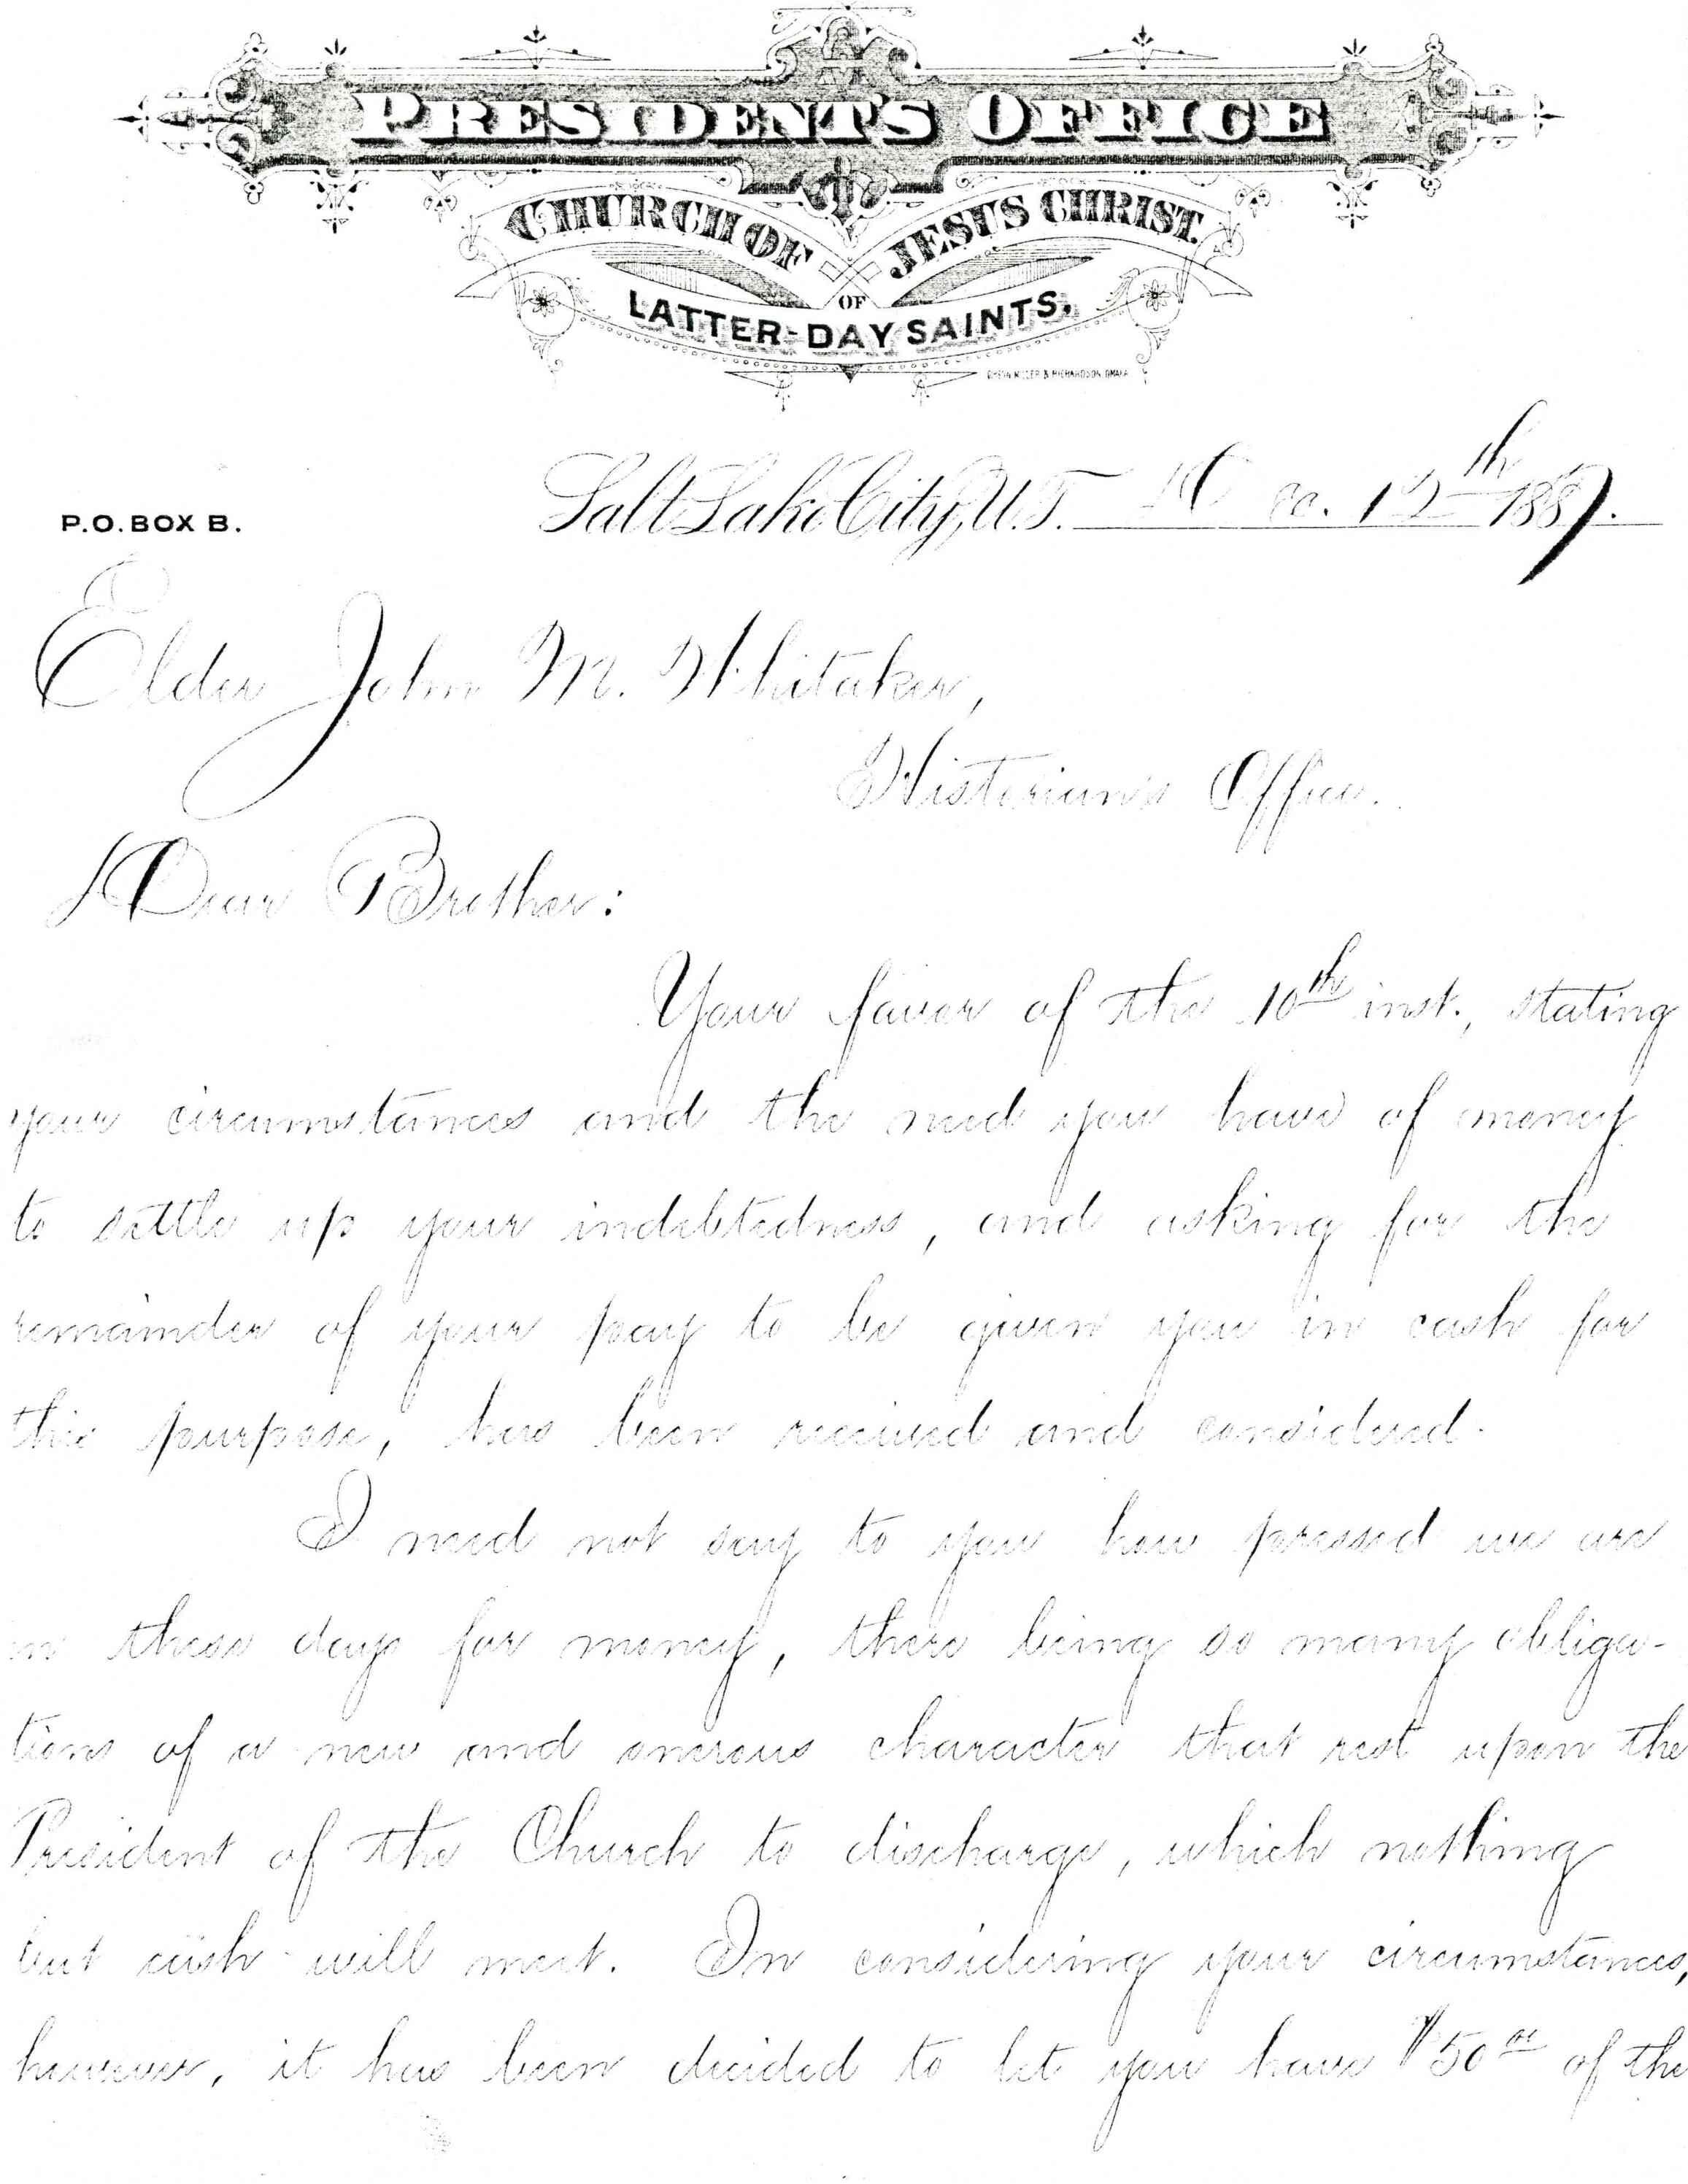 PRESIDENT'S OFFICE
CHURCH OF JESUS CHRIST
OF
LATTER-DAY SAINTS.
P.O. BOX B.
Salt Lake City, U.T. Dec. 12th 1887.
Elder John M. Whitaker,
Historian's Office.
Dear Brother:
Your favor of the 10th inst., stating
your circumstances and the need you have of money
to settle up your indebtedness, and asking for the
remainder of your pay to be given you in cash for
this purpose, has been received and considered.
I need not say to you how pressed we are
in these days for money, there being so many obliga-
tions of a new and onerous character that rest upon the
President of the Church to discharge, which nothing
but cash will meet. In considering your circumstances,
however, it has been decided to let you have $50 00 of the